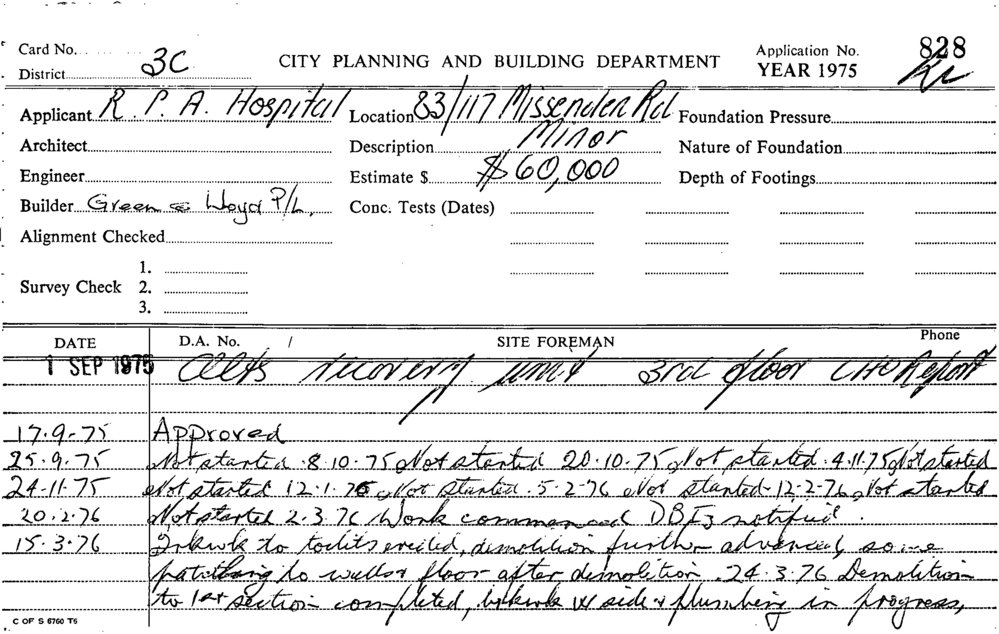 Card No. 828
District 3C CITY PLANNING AND BUILDING DEPARTMENT Application No. YEAR 1975
Applicant R. P. A. Hospital Location 83/117 Missenden Rd Foundation Pressure
Architect Description Minor Nature of Foundation
Engineer Estimate $ $60,000 Depth of Footings
Builder Green & Lloyd P/L, Conc. Tests (Dates)
Alignment Checked
1.
Survey Check 2.
3.
DATE D.A. No. / SITE FOREMAN Phone
1 SEP 1975 Alts recovery unit 3rd floor CHO Report
17.9.75 Approved
25.9.75 Not started . 8.10.75 Not started 20.10.75 Not started . 4.11.75 Not started
24.11.75 Not started 12.1.76 Not started . 5.2.76 Not started 12.2.76 Not started
20.2.76 Not started 2.3.76 Work commenced DBI3 notified .
15.3.76 Brkwk to toilets erected, demolition further advanced, some
patching to walls & floor after demolition . 24.3.76 Demolition
to 1st section completed, brkwk W side & plumbing in progress,
C OF S 6760 T6